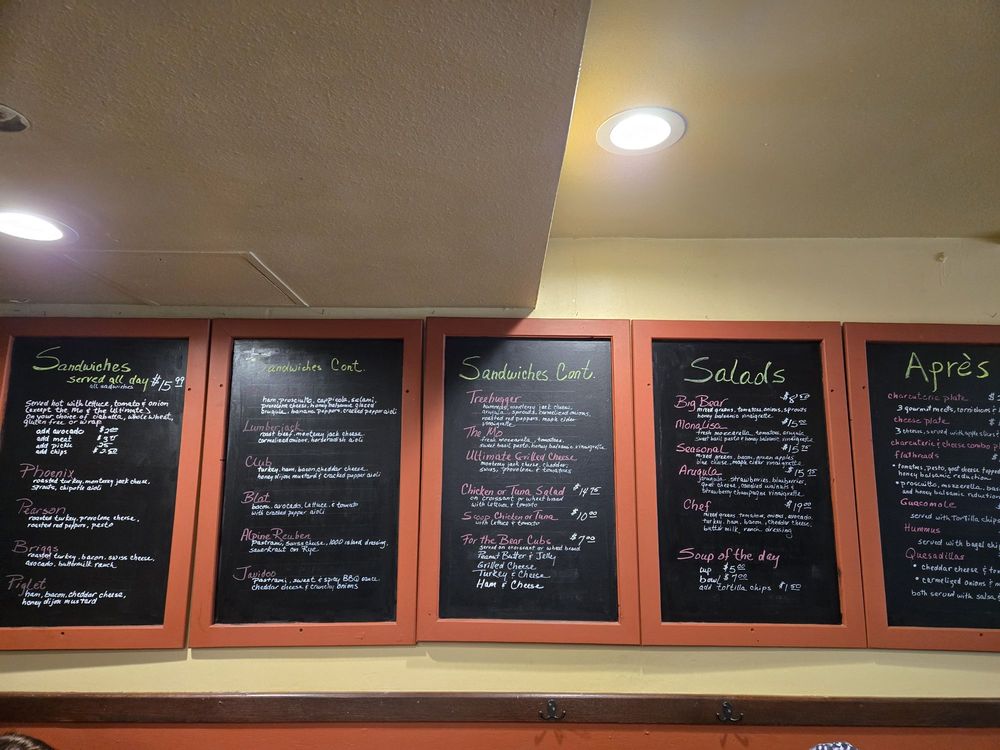 Sandwiches
served all day $15.99
all sandwiches
Served hot with lettuce, tomato & onion
(except the Mo & the Ultimate)
On your choice of ciabatta, whole wheat,
gluten free or wrap
add avocado $2.00
add meat
add pickle
add chips $2.50
Phoenix
roasted turkey, monterey jack cheese,
sprouts, chipotle aioli
Pearson
roasted turkey, provolone cheese,
roasted red peppers, pesto
Briggs
roasted turkey, bacon, swiss cheese,
avocado, buttermilk ranch
Piglet
ham, bacon, cheddar cheese,
honey dijon mustard
Sandwiches Cont.
ham, prosciutto, cappicola, salami,
provolone cheese, honey balsamic glaze
arugula, banana peppers, cracked pepper aioli
Lumberjack
roast beef, monterey jack cheese
carmelized onions, horseradish aioli
Club
turkey, ham, bacon, cheddar cheese,
honey dijon mustard & cracked pepper aioli
Blat
bacon, avocado, lettuce, & tomato
with cracked pepper aioli
Alpine Reuben
Pastrami, swiss cheese, 1000 island dressing,
sauerkraut on Rye
Pastrami, sweet & spicy BBQ sauce,
cheddar cheese & crunchy onions
Sandwiches Cont.
Treehugger
hummus, monterey jack cheese,
arugula, sprouts, carmelized onions,
roasted red peppers, maple cider
vinaigrette
The Mo
fresh mozzarella, tomatoes,
sweet basil pesto, honey balsamic vinaigrette
Ultimate Grilled Cheese
monterey jack cheese, cheddar,
swiss, provolone & tomatoes
Chicken or Tuna Salad
on croissant or wheat bread
with lettuce & tomato
Scoop Chicken or Tuna $10.00
with lettuce & tomato
For the Bear Cubs $7.00
served on croissant or wheat bread
Peanut Butter & Jelly
Grilled Cheese
Turkey & Cheese
Ham & Cheese
Salads
Big Bear
mixed greens, tomatoes, onions, sprouts
honey balsamic vinaigrette
Monalisa
fresh mozzarella, tomatoes, arugula
sweet basil pesto & honey balsamic vinaigrette
Seasonal
mixed greens, bacon, green apples
blue cheese, maple cider vinaigrette
Arugula
arugula, strawberries, blueberries,
goat cheese, candied walnuts &
strawberry champagne vinaigrette
Chef
mixed greens, tomatoes, onions, avocado,
turkey, ham, bacon, cheddar cheese,
butter milk ranch dressing
Soup of the day
cup $5.00
bowl $7.00
add tortilla chips $1.50
Après
charcuterie plate
3 gourmet meats,
cheese plate
3 cheeses, served with apple slices
charcuterie & cheese combo
flatbreads
• tomatoes, pesto, goat cheese
honey balsamic reduction
• prosciutto, mozzarella,
and honey balsamic reduction
Guacamole
served with Tortilla chips
Hummus
served with bagel
Quesadillas
• cheddar cheese &
• carmelized onions &
both served with salsa